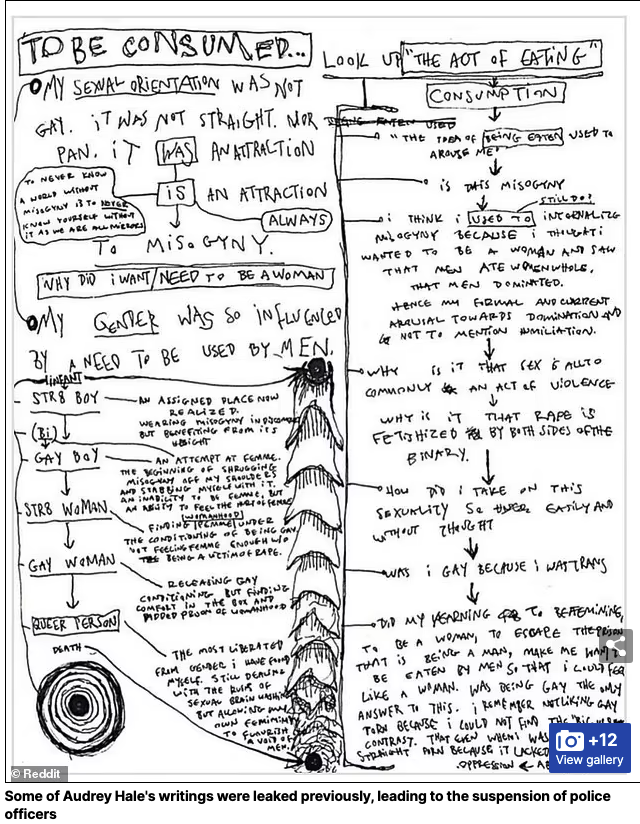 TO BE CONSUMED...
MY SEXUAL ORIENTATION WAS NOT
GAY. iT WAS NOT STRAIGHT. NOR
PAN. iT WAS AN ATTRACTION
iS AN ATTRACTION
ALWAYS
TO MiSOGYNY.
TO NEVER KNOW
A WORLD WITHOUT
MISOGYNY IS TO NEVER
KNOW YOURSELF WITHOUT
IT AS WE ARE ALL MIRRORS
WHY DiD i WANT/NEED TO BE A WOMAN
MY GENDER WAS SO iNFLUENCED
BY A NEED TO BE USED BY MEN.
INFANT
STR8 BOY
(Bi)
GAY BOY
STR8 WOMAN
GAY WOMAN
QUEER PERSON
DEATH
AN ASSIGNED PLACE NOW
REALIZED.
WEARING MISOGYNY IN
BUT BENEFITING FROM ITS
WEIGHT
AN ATTEMPT AT FEMME.
THE BEGINNING OF SHRUGGING
MISOGYNY OFF MY SHOULDERS
AND STABBING MYSELF WITH IT.
AN INABILITY TO BE FEMME, BUT
AN ABILITY TO FEEL THE OF FEMME
[WOMANHOOD]
FINDING [FEMME] UNDER
THE CONDITIONING OF BEING GAY
NOT FEELING FEMME ENOUGH W/O
BEING A VICTIM OF RAPE.
RELEASING GAY
CONDITIONING BUT FINDING
COMFORT IN THE BOX AND
PADDED PRISON OF WOMANHOOD
THE MOST LIBERATED
FROM GENDER i HAVE FOUND
MYSELF. STILL DEALING
WITH THE RUINS OF
SEXUAL BRAIN WASHING
BUT ALLOWING MY
OWN FEMININITY
TO FLOURISH
A VOID OF
MEN.
LOOK UP "THE ACT OF EATING"
CONSUMPTION
BEING EATEN USED
"THE IDEA OF BEING EATEN USED TO
AROUSE ME"
iS THIS MISOGYNY
STILL DO?
i THINK i USED TO INTERNALIZE
MISOGYNY BECAUSE i THOUGHT i
WANTED TO BE A WOMAN AND SAW
THAT MEN ATE WOMEN WHOLE.
THAT MEN DOMINATED.
HENCE MY FORMAL AND CURRENT
AROUSAL TOWARDS DOMINATION AND
NOT TO MENTION HUMILIATION.
WHY IS IT THAT SEX IS ALL TO
COMMONLY AN ACT OF VIOLENCE
WHY IS IT THAT RAPE IS
FETISHIZED BY BOTH SIDES OF THE
BINARY.
HOW DID i TAKE ON THIS
SEXUALITY SO EASILY AND
WITHOUT THOUGHT
WAS i GAY BECAUSE i WAS TRANS
DID MY YEARNING TO BE FEMININE,
TO BE A WOMAN, TO ESCAPE THE PRISON
THAT IS BEING A MAN, MAKE ME WANT TO
BE EATEN BY MEN SO THAT i COULD FEEL
LIKE A WOMAN. WAS BEING GAY THE ONLY
ANSWER TO THIS. i REMEMBER NOT LIKING GAY
PORN BECAUSE i COULD NOT FIND THE
CONTRAST. THAT EVEN WHEN i WAS
STRAIGHT PORN BECAUSE IT LACKED
OPPRESSION
© Reddit
+12
View gallery
Some of Audrey Hale's writings were leaked previously, leading to the suspension of police
officers